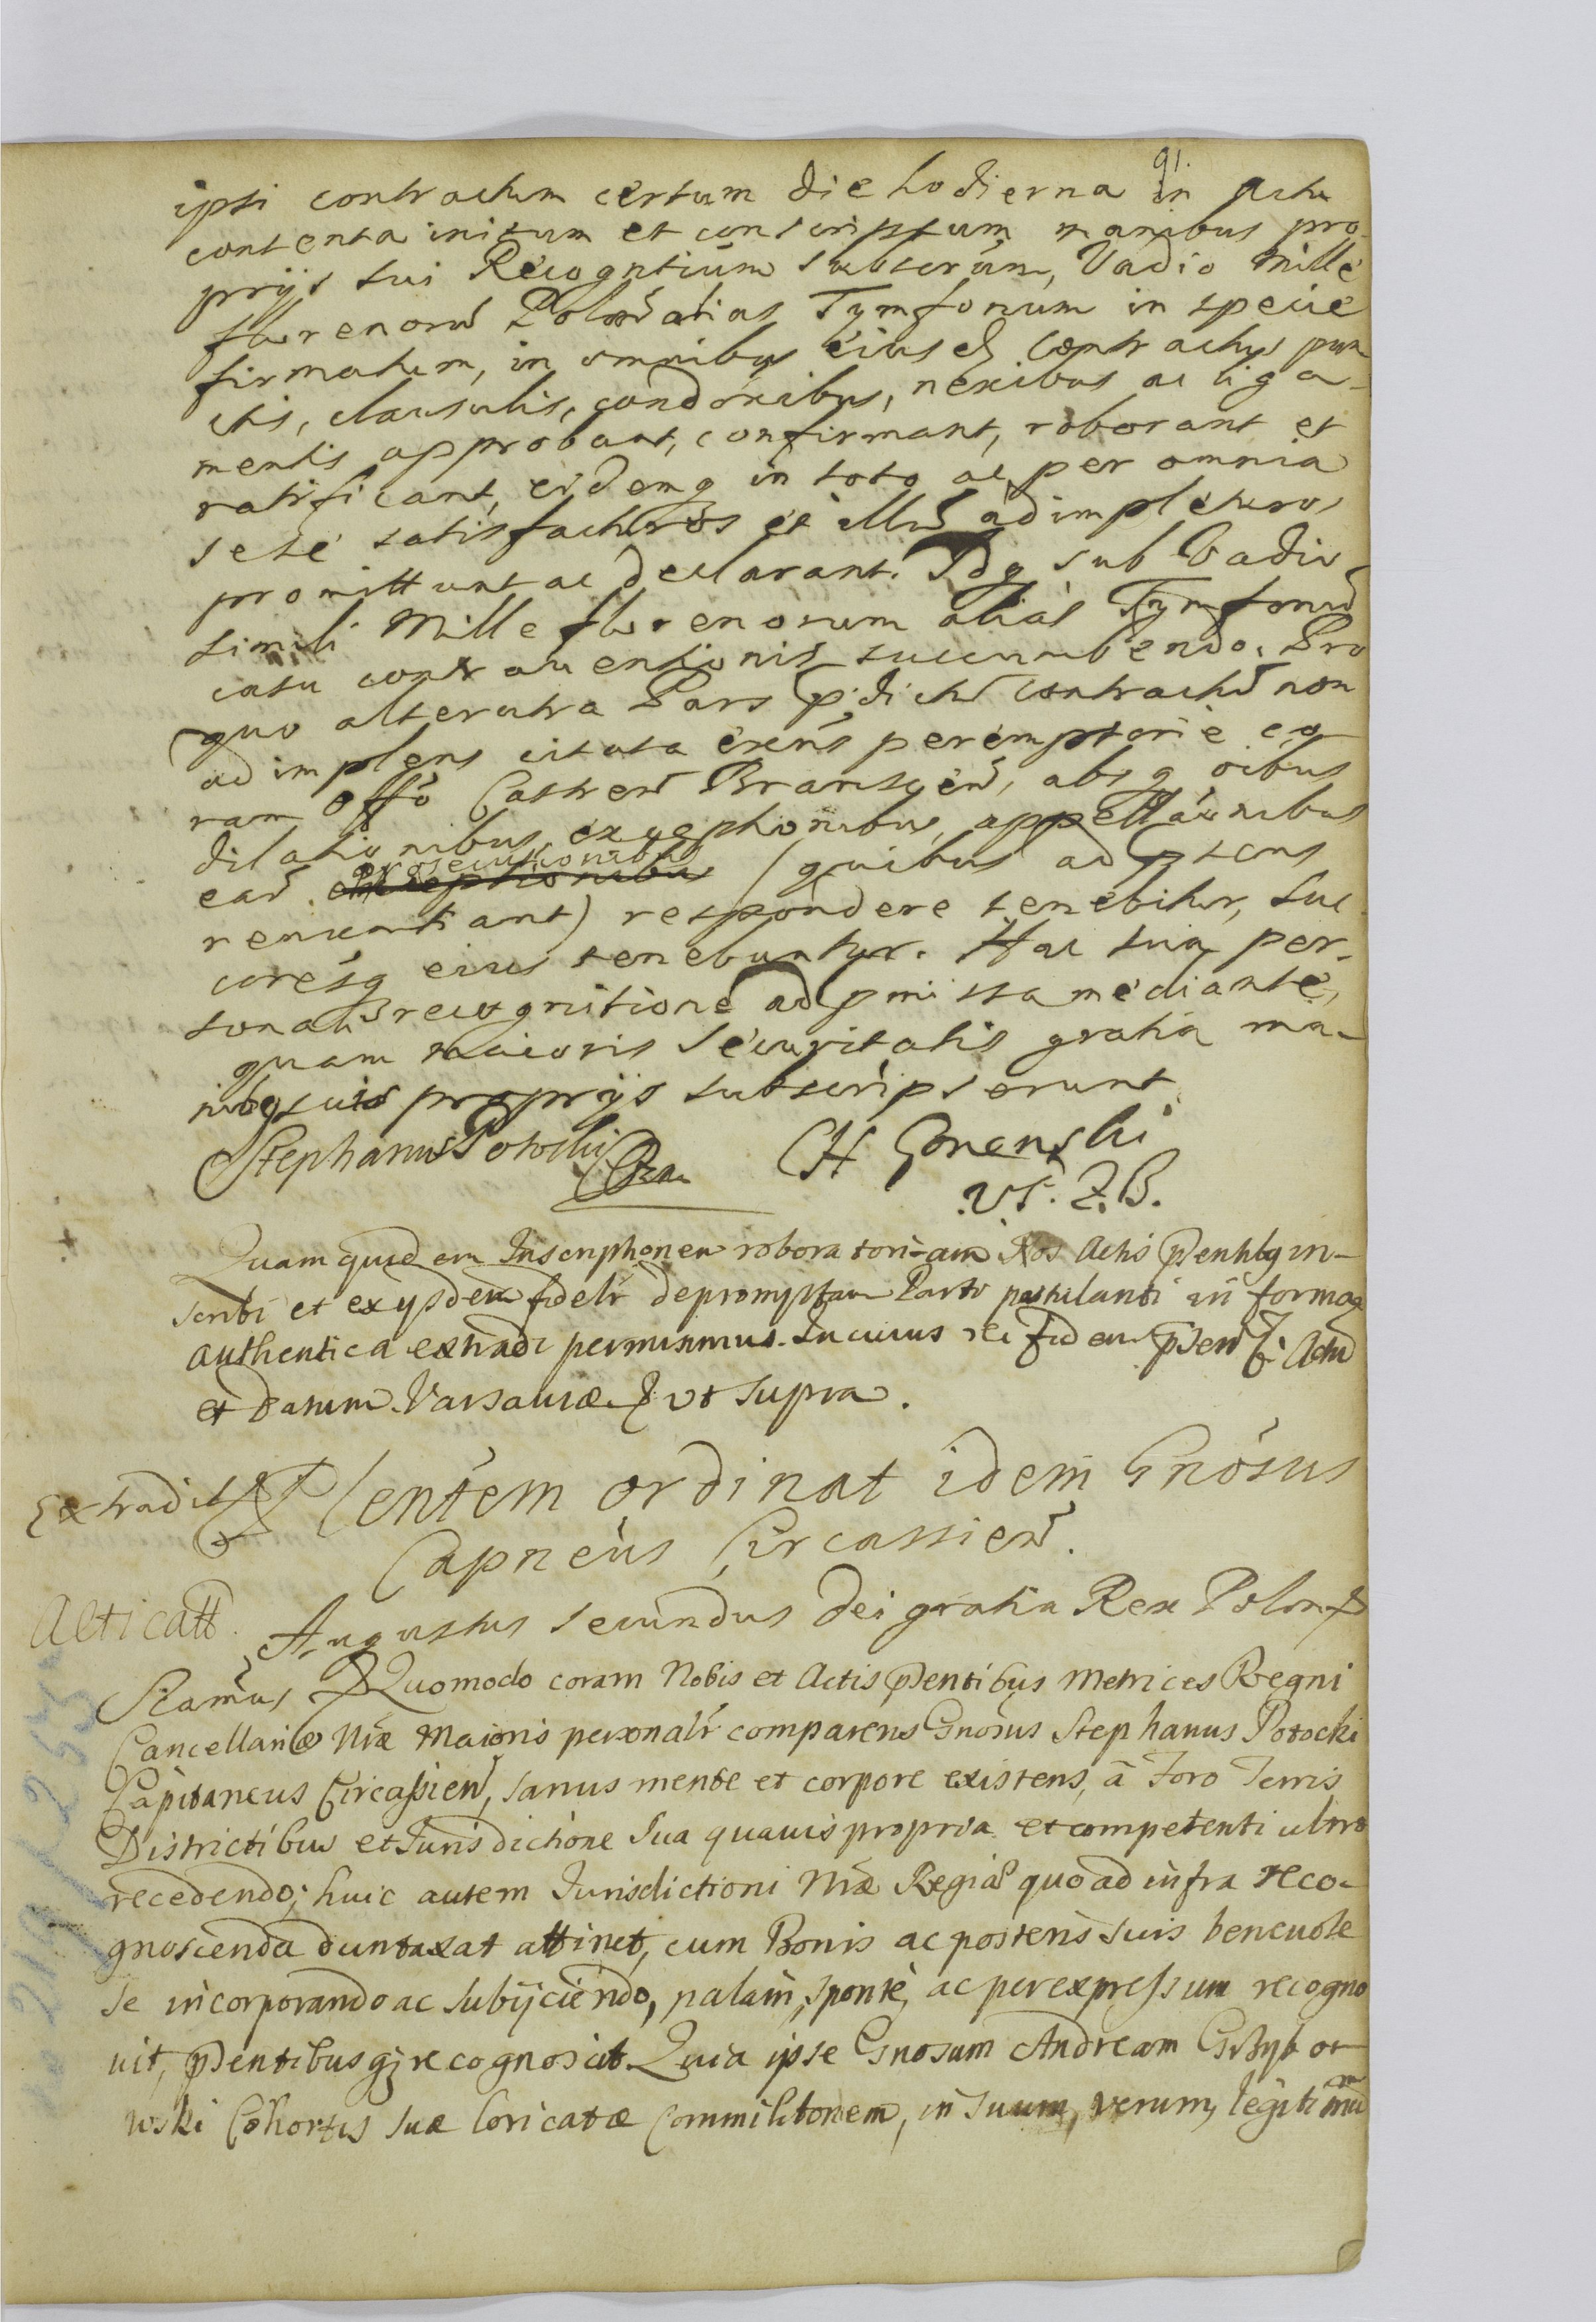 91.
ipsi contractum certum die hodierna in actu
contenta initum et conscriptum manibus pro-
prijs sui Recogntium subscrum, Vadio mille
florenorũ Polon̄ alias Tymfonum in specie
firmatum, in omnibus eiusd contractus pun
ctis, clausulis, condõnibus, nexibus ac liga-
mentis approbant, confirmant, roborant et
ratificant, eidemq in toto ac per omnia
sese satisfacturos et illũ adimpleturos
promittunt ac declarant. Idq sub Vadio
simili Mille florenorum alias Tymfonũ
casu contrauentionis succumbendo. Pro
quo alterutra Pars pdictũ contractũ non
adimplens citata exñs peremptorie co
ram Offo Castren̄ Branscen̄, absq oibus
dilationibus, exceptionibus, appellaõnibus
ear̃. prosecutionibus (quibus ad pntens
renuntiant) respondere tenebitur, suc
coresq eius tenebuntur. Hac sua per-
sonali recognitione ad pmissa mediante,
quam maioris securitatis gratia ma-
nibq suis proprijs subscripserunt
Stephanus Potocki CH Gonenski
V.S. Z.B.
Quam quidem Inscriptionem roboratoriam Nos Actis pñentibq in-
scribi et ex ijsdem fidelr̃ depromptam Parti postulanti in forma
authentica extradi permisimus. In cuius rei fidem pñen̄ & Actũ
et Datum Varsauiæ & ut supra.
Extradit Plentem ordinat idem Gnosus
Capneus Circassien̄.
Acticatt. Augustus secundus Dei gratia Rex Polon &
Signamus Quomodo coram Nobis et Actis pñentibus Metrices Regni
Cancellariæ Nræ Maioris personalr̃ comparens Gnosus Stephanus Potocki
Capitaneus Circassien̄, sanus mente et corpore existens, â Foro Terris
Districtibus et Jurisdictione sua quauis propria et competenti ultro
recedendo; huic autem Jurisdictioni Nræ Regiæ quo ad infra reco-
gnoscenda duntaxat attinet, cum Bonis ac posteris suis beneuole
se incorporando ac subijciendo, palam, sponte, ac per expressum recogno
uit, pñentibusq; recognoscit. Quia ipse Gnosum Andream Grzybo
wski Cohortis suæ loricatæ Commilitonem, in suum, verum, legitimũ